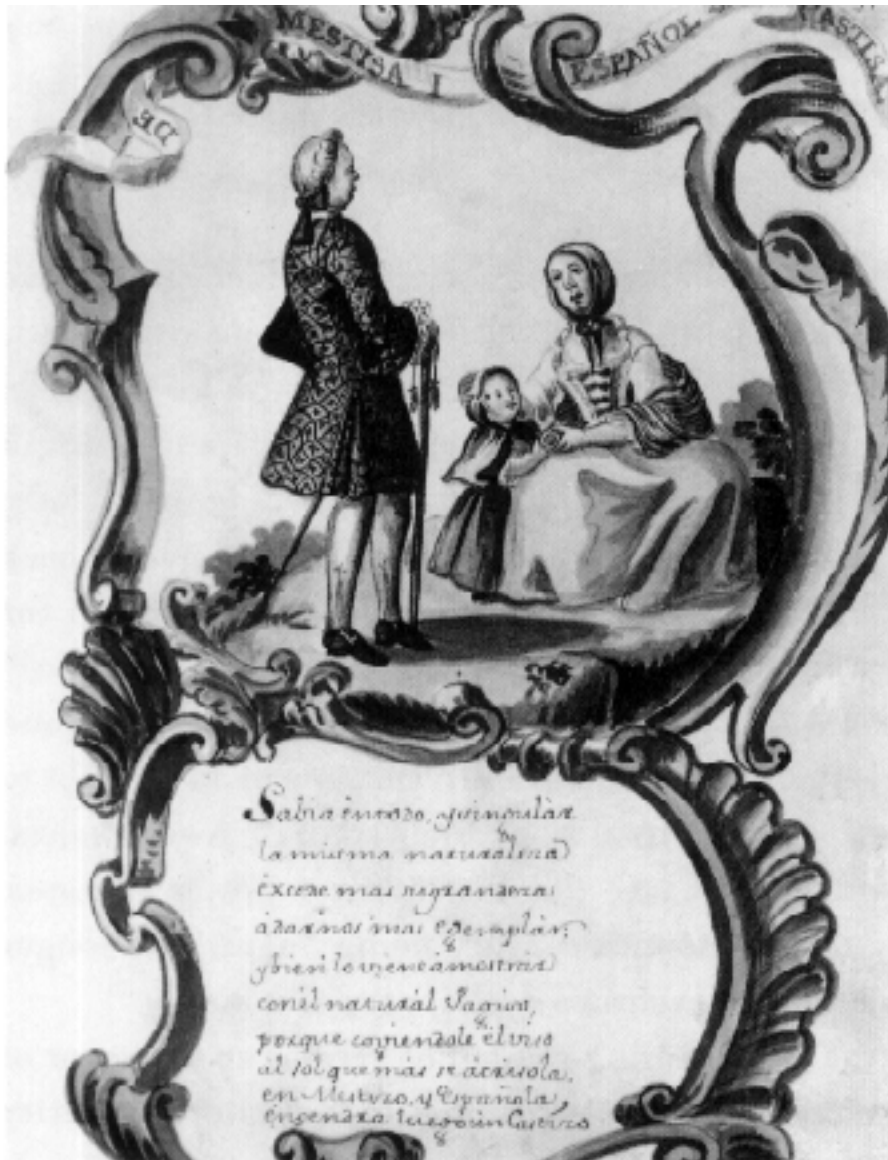 DE MESTISA I ESPAÑOL CASTISA
Sabia en todo, y singular
la misma naturaleza
excede mas
a darnos mas egemplar,
y bien lo viene a mostrar
con el natural
porque cojiendole el viso
al sol que más se ácrisola,
en Mestizo, y Española,
engendra luego un Castizo